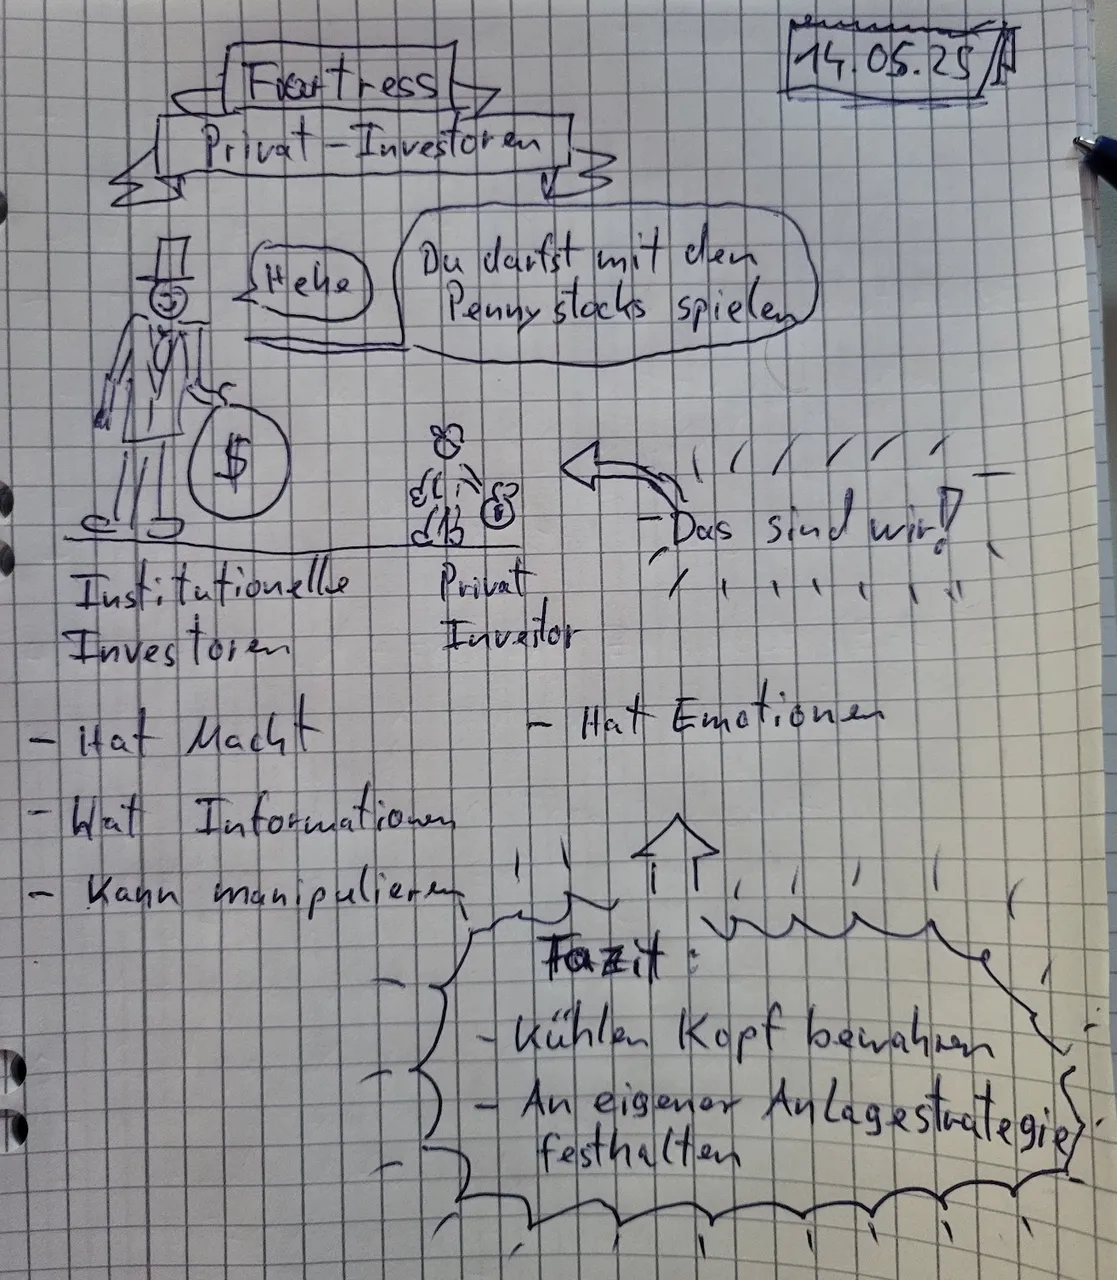 14.05.25
Fortress
Privat-Investoren
Hehe
Du darfst mit den
Pennystocks spielen
$
Das sind wir!
Institutionelle
Investoren
Privat
Investor
- Hat Macht
- Hat Informationen
- Kann manipulieren
- Hat Emotionen
Fazit:
- Kühlen Kopf bewahren
- An eigener Anlagestrategie
festhalten